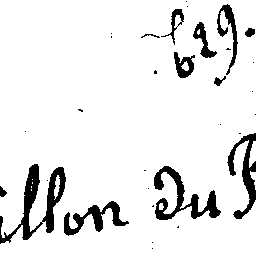 629.
illon du P